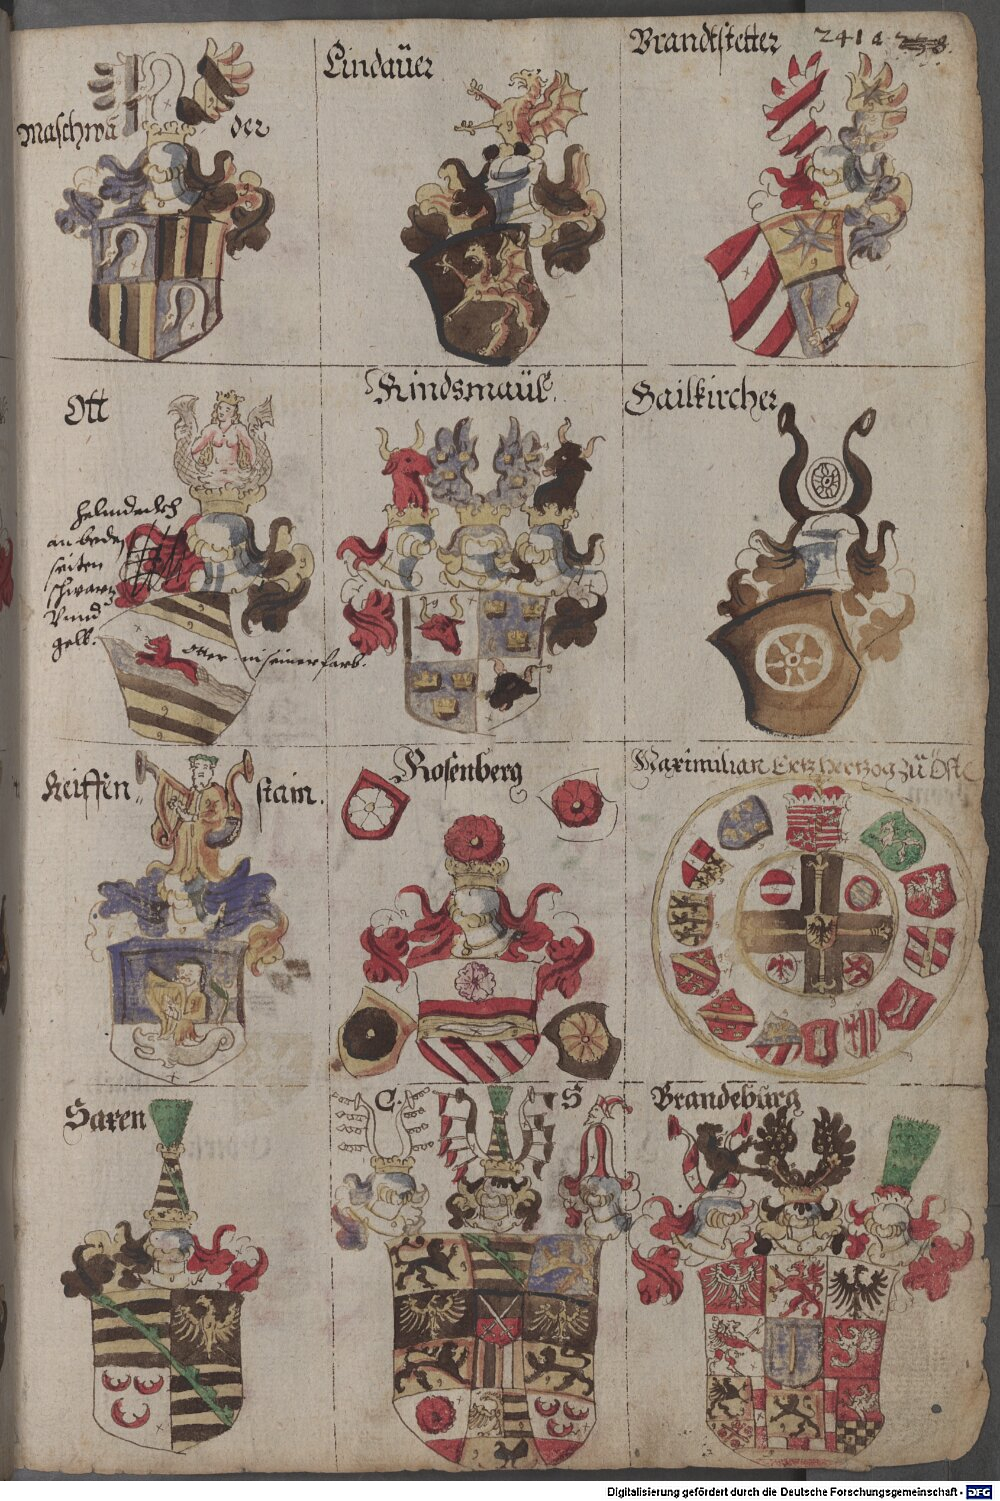 Maschwa der
Lindaüer
Brandtstetter
241
Ott
helmdeckh
an beden
seiten
schwartz
Vnnd
gelb.
Otter in seiner farb.
Rindsmaül.
Gailkircher
Reiffen stain.
Rosenberg
Maximilian Ertzhertzog zü Öste
Saxen
C. S
Brandebürg
Digitalisierung gefördert durch die Deutsche Forschungsgemeinschaft - DFG